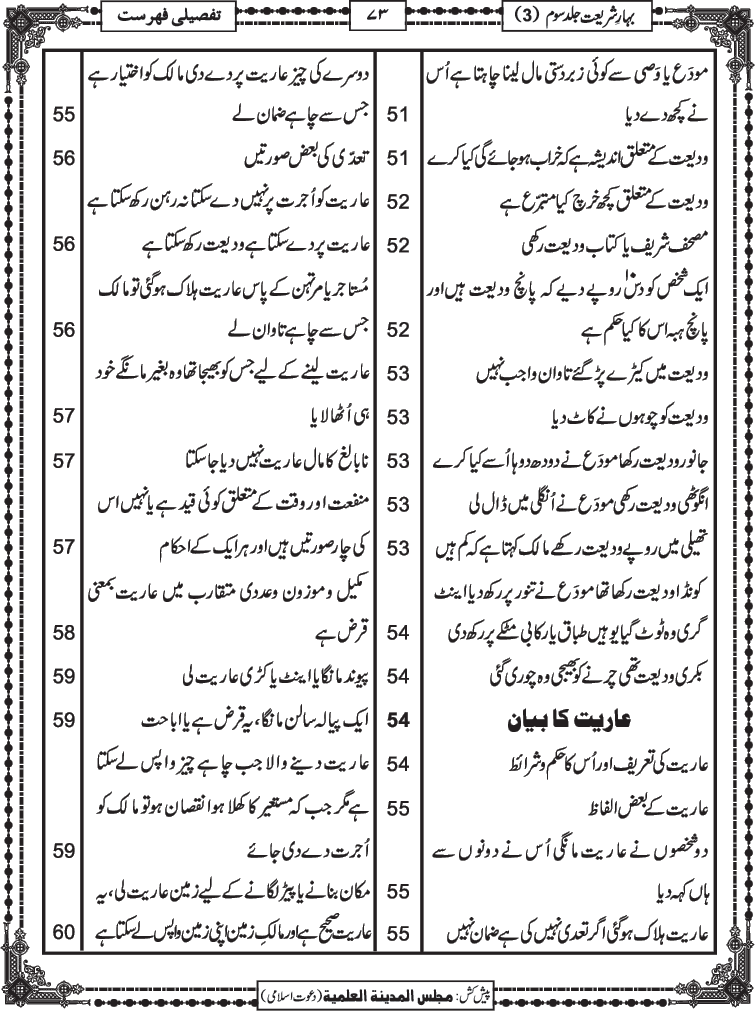 بہارِ شریعت جلد سوم (3)
۷۳
تفصیلی فہرست
مودَع یا وَصی سے کوئی زبردستی مال لینا چاہتا ہے اُس
نے کچھ دے دیا 51
ودیعت کے متعلق اندیشہ ہے کہ خراب ہوجائے گی کیا کرے 51
ودیعت کے متعلق کچھ خرچ کیا متبرّع ہے 52
مصحف شریف یا کتاب ودیعت رکھی 52
ایک شخص کو دس۱۰ روپے دیے کہ پانچ ودیعت ہیں اور
پانچ ہبہ اس کا کیا حکم ہے 52
ودیعت میں کیڑے پڑ گئے تاوان واجب نہیں 53
ودیعت کو چوہوں نے کاٹ دیا 53
جانور ودیعت رکھا مودَع نے دودھ دوہا اُسے کیا کرے 53
انگوٹھی ودیعت رکھی مودَع نے اُنگلی میں ڈال لی 53
تھیلی میں روپے ودیعت رکھے مالک کہتا ہے کہ کم ہیں 53
کونڈا ودیعت رکھا تھا مودَع نے تنور پر رکھ دیا اینٹ
گری وہ ٹوٹ گیا یوہیں طباق یا رکابی مٹکے پر رکھ دی 54
بکری ودیعت تھی چرنے کو بھیجی وہ چوری گئی 54
عاریت کا بیان 54
عاریت کی تعریف اور اُس کا حکم و شرائط 54
عاریت کے بعض الفاظ 55
دو شخصوں نے عاریت مانگی اُس نے دونوں سے
ہاں کہہ دیا 55
عاریت ہلاک ہوگئی اگر تعدی نہیں کی ہے ضمان نہیں 55
دوسرے کی چیز عاریت پر دے دی مالک کو اختیار ہے
جس سے چاہے ضمان لے 55
تعدّی کی بعض صورتیں 56
عاریت کو اُجرت پر نہیں دے سکتا نہ رہن رکھ سکتا ہے
عاریت پر دے سکتا ہے ودیعت رکھ سکتا ہے 56
مُستاجر یا مرتہن کے پاس عاریت ہلاک ہوگئی تو مالک
جس سے چاہے تاوان لے 56
عاریت لینے کے لیے جس کو بھیجا تھا وہ بغیر مانگے خود
ہی اُٹھا لایا 57
نابالغ کا مال عاریت نہیں دیا جاسکتا 57
منفعت اور وقت کے متعلق کوئی قید ہے یا نہیں اس
کی چار صورتیں ہیں اور ہر ایک کے احکام 57
مکیل و موزون و عددی متقارب میں عاریت بمعنی
قرض ہے 58
پیوند مانگا یا اینٹ یا کڑی عاریت لی 59
ایک پیالہ سالن مانگا، یہ قرض ہے یا اباحت 59
عاریت دینے والا جب چاہے چیز واپس لے سکتا
ہے مگر جب کہ مستعیر کا کھلا ہوا نقصان ہو تو مالک کو
اُجرت دے دی جائے 59
مکان بنانے یا پیڑ لگانے کے لیے زمین عاریت لی، یہ
عاریت صحیح ہے اور مالکِ زمین اپنی زمین واپس لے سکتا ہے 60
پیش کش: مجلس المدینۃ العلمیۃ (دعوتِ اسلامی)